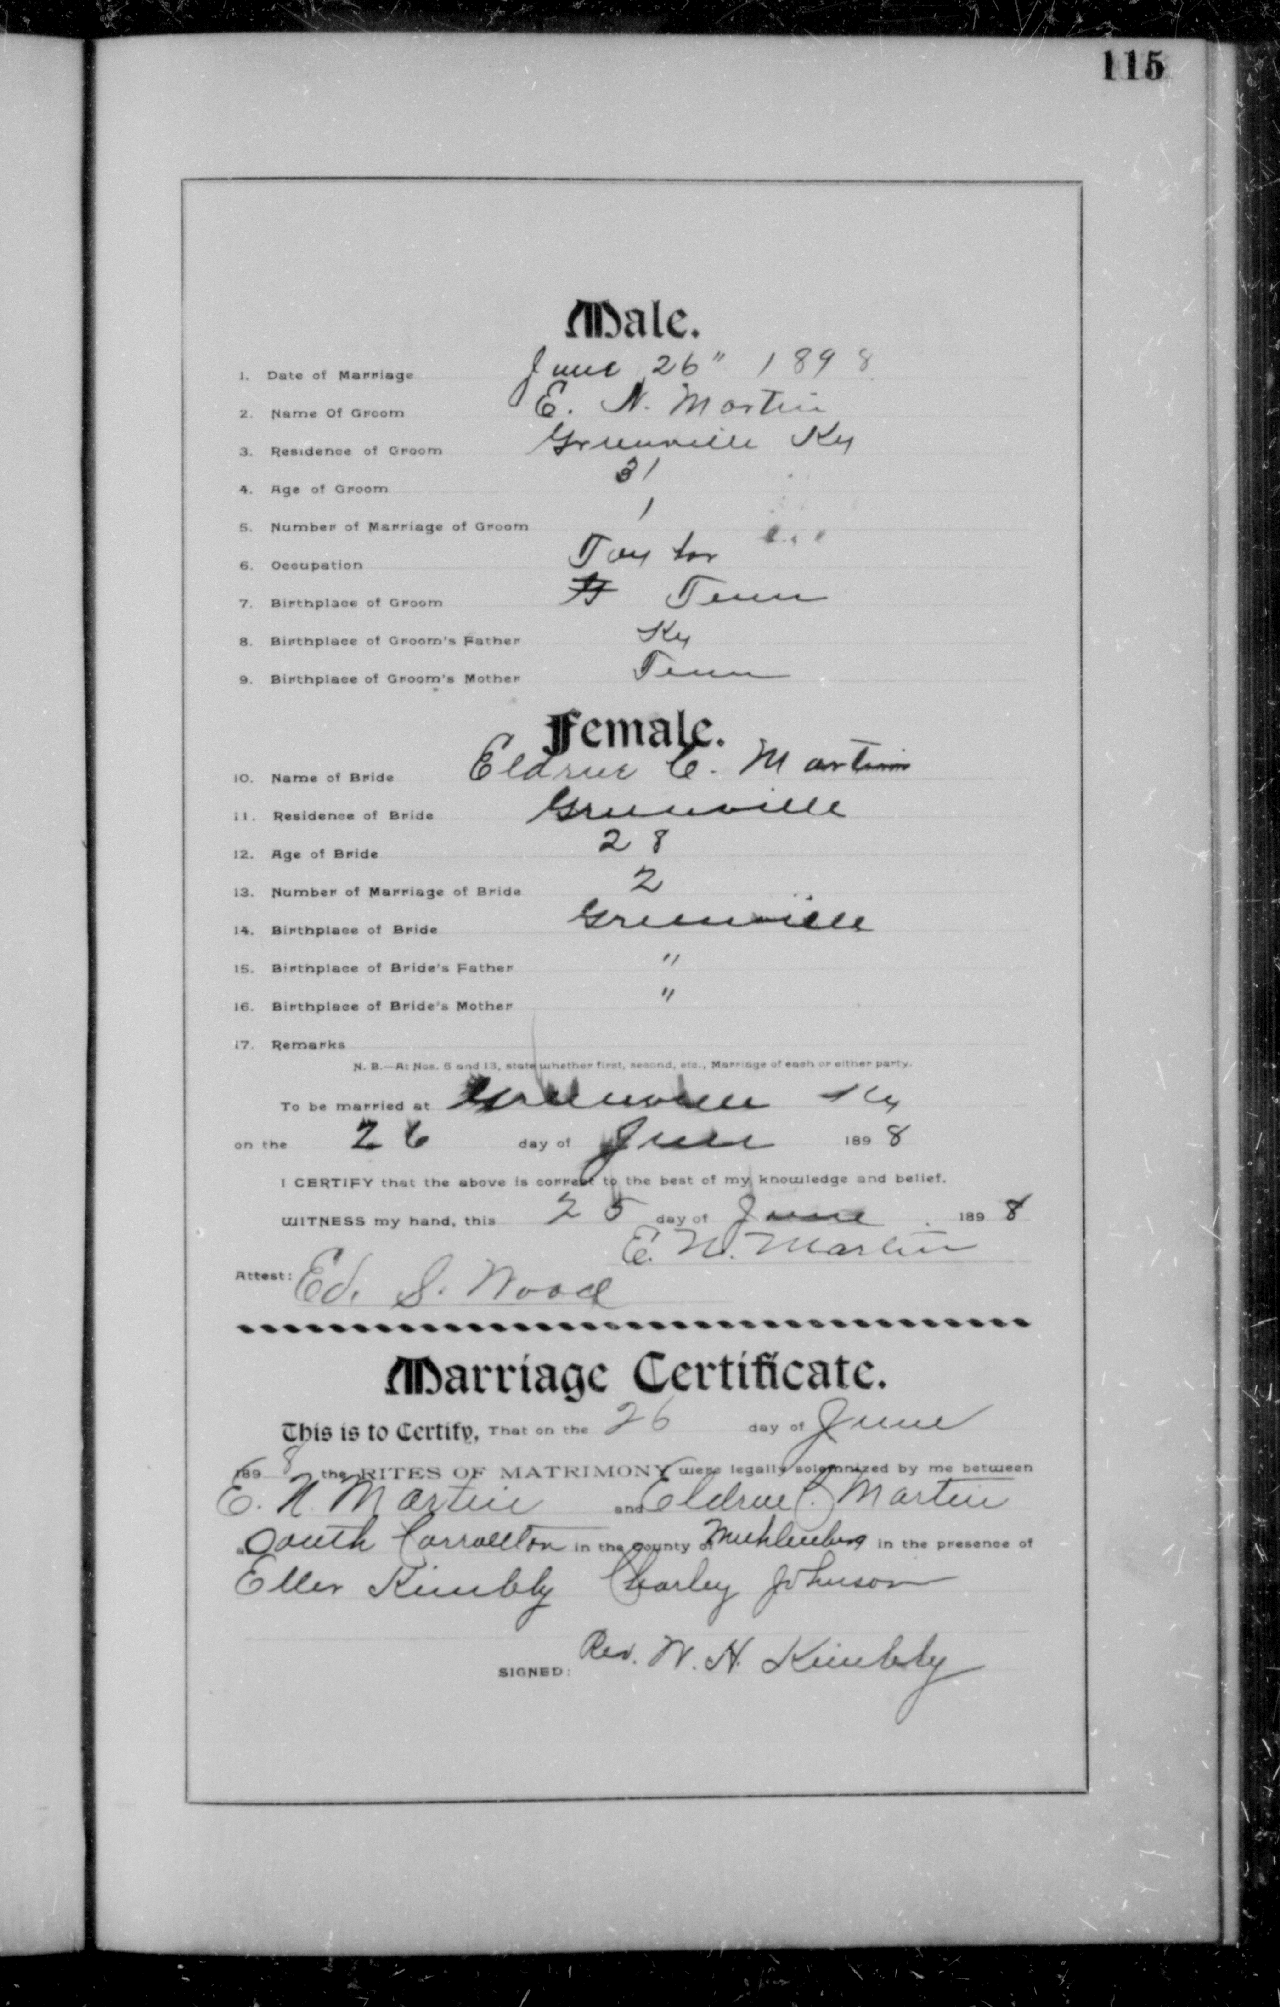 115
Male.
1. Date of Marriage June 26" 1898
2. Name Of Groom E. N. Martin
3. Residence of Groom Greenville Ky
4. Age of Groom 31
5. Number of Marriage of Groom 1
6. Occupation
7. Birthplace of Groom Tenn
8. Birthplace of Groom's Father Ky
9. Birthplace of Groom's Mother Tenn
Female.
10. Name of Bride C. Martin
11. Residence of Bride Greenville
12. Age of Bride 28
13. Number of Marriage of Bride 2
14. Birthplace of Bride Greenville
15. Birthplace of Bride's Father "
16. Birthplace of Bride's Mother "
17. Remarks
N. B.—At Nos. 5 and 13, state whether first, second, etc., Marriage of each or either party.
To be married at Greenville Ky
on the 26 day of June 1898
I CERTIFY that the above is correct to the best of my knowledge and belief.
WITNESS my hand, this 25 day of June 1898
E. N. Martin
Attest: Ed. S. Wood
Marriage Certificate.
This is to Certify, That on the 26 day of June
1898 the RITES OF MATRIMONY were legally solemnized by me between
E. N. Martin and C. Martin
South Carrollton in the county of Muhlenberg in the presence of
Eller Kimbly Charley Johnson
SIGNED: Rev. W. H. Kimbly